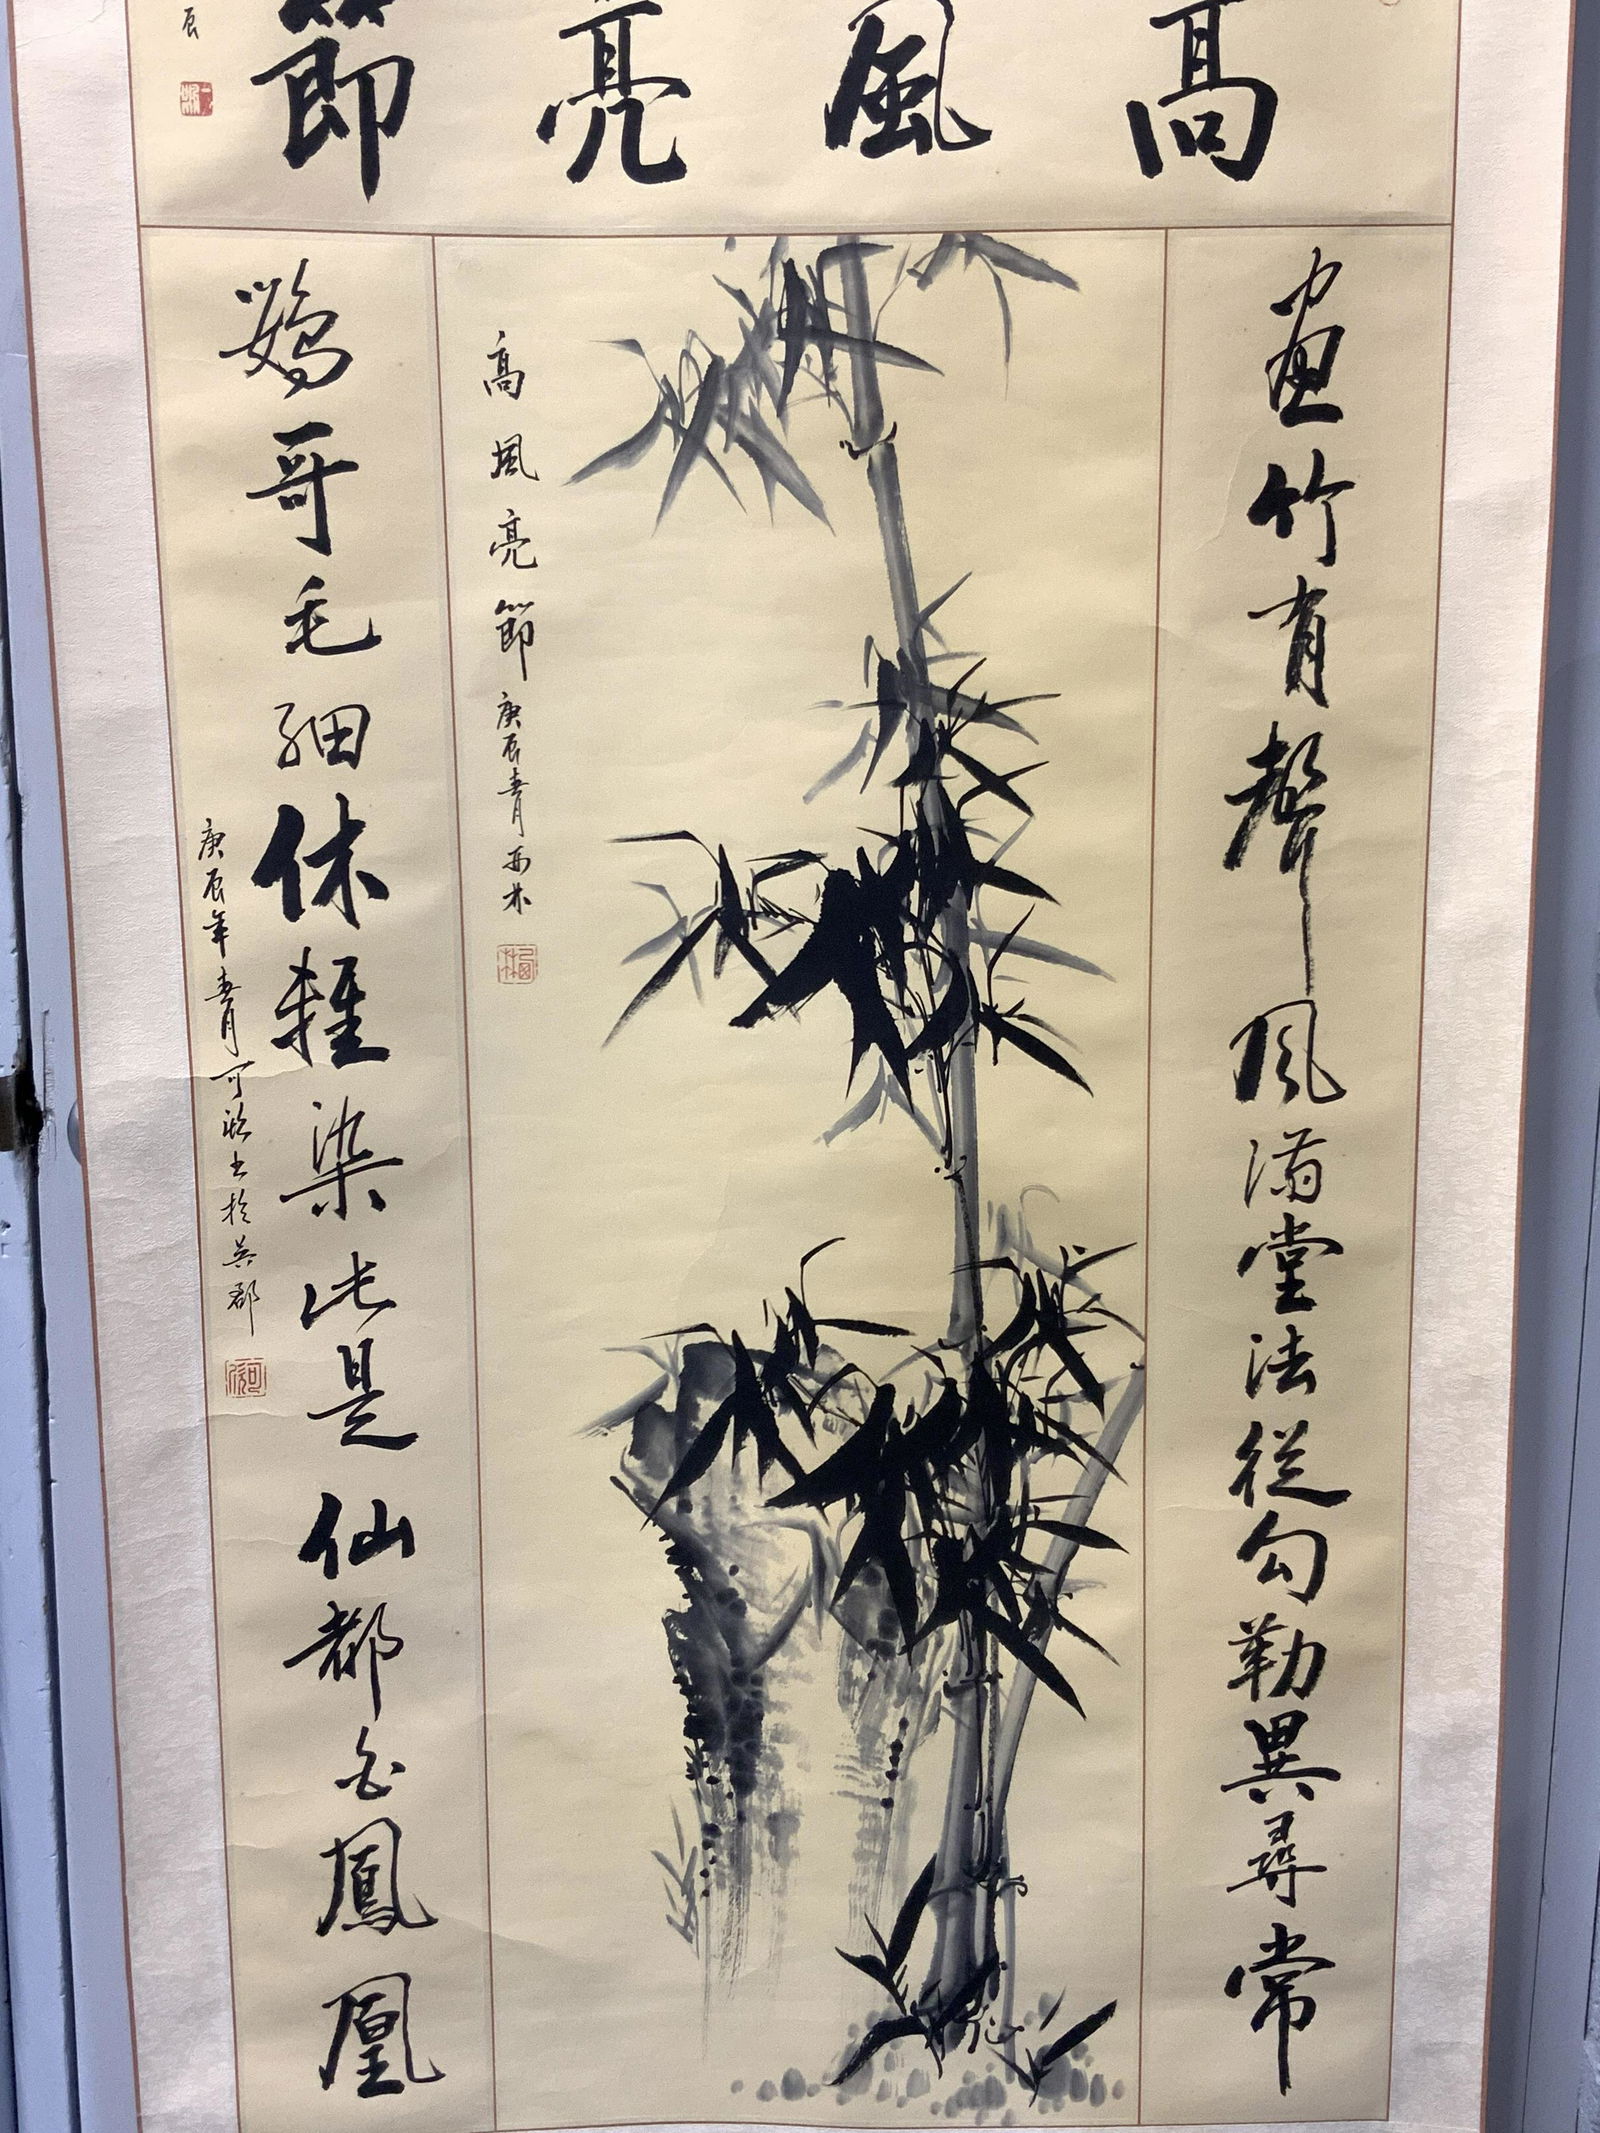 高風亮節
辰
畫竹有聲風滿堂法從勾勒異尋常
高風亮節
庚辰青月西林
鸚哥毛細休輕染此是仙都白鳳凰
庚辰年青月可欣書於吳郡